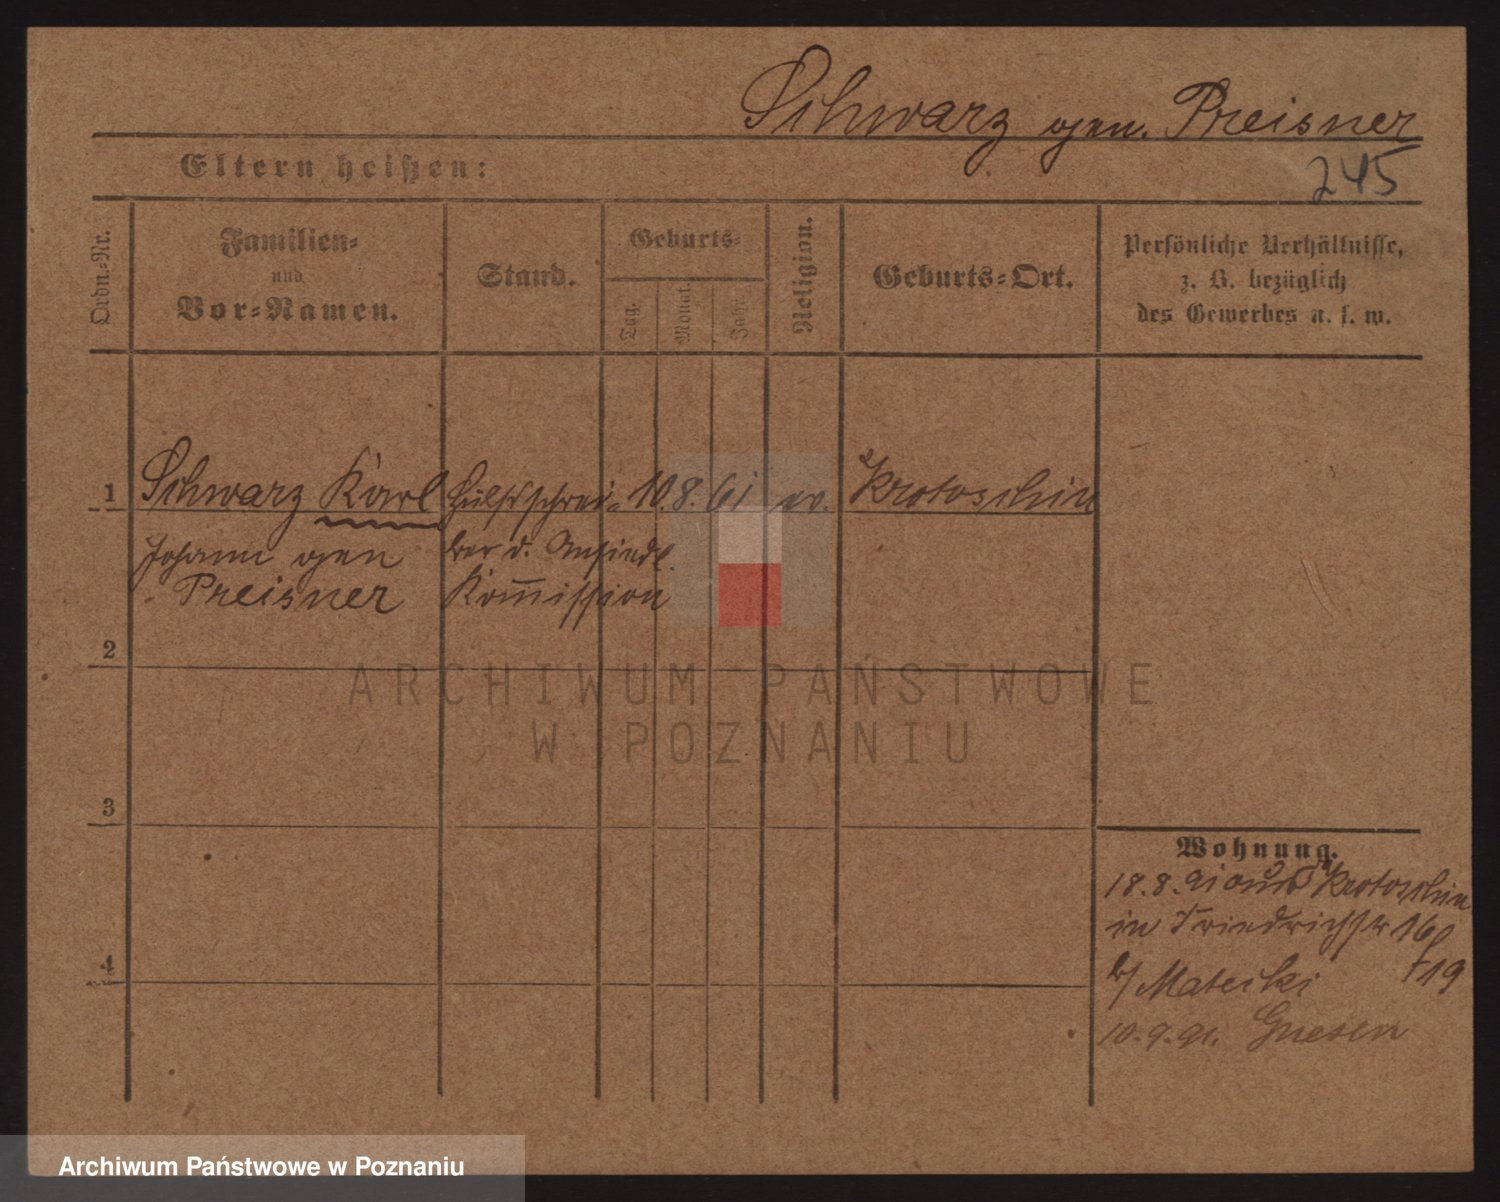 Schwarz gen. Preisner
Eltern heißen:
245
Ordn.-Nr.
Familien-
und
Vor-Namen.
Stand.
Geburts-
Tag.
Monat.
Jahr.
Religion.
Geburts-Ort.
Persönliche Verhältnisse,
z. B. bezüglich
des Gewerbes u. s. w.
1
Schwarz Karl
Johann gen
Preisner
Hülfsschrei-
ber d. Ansiedl.
Kom̅ission
10. 8. 61
ev.
Krotoschin
2
3
4
Wohnung.
18. 8. 91 aus Krotoschin
in Friedrichstr 16
b/ Matecki 19
10. 9. 91. Gnesen
ARCHIWUM PAŃSTWOWE
W POZNANIU
Archiwum Państwowe w Poznaniu